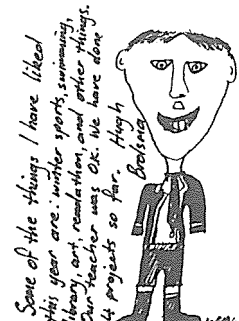 Some of the things I have liked
this year are: winter sports, swimming,
library, art, readathon, and other things.
Our teacher was O.K. We have done
4 projects so far. Hugh